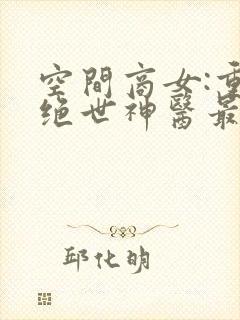 空間商女:重
绝世神醫最
邱化明